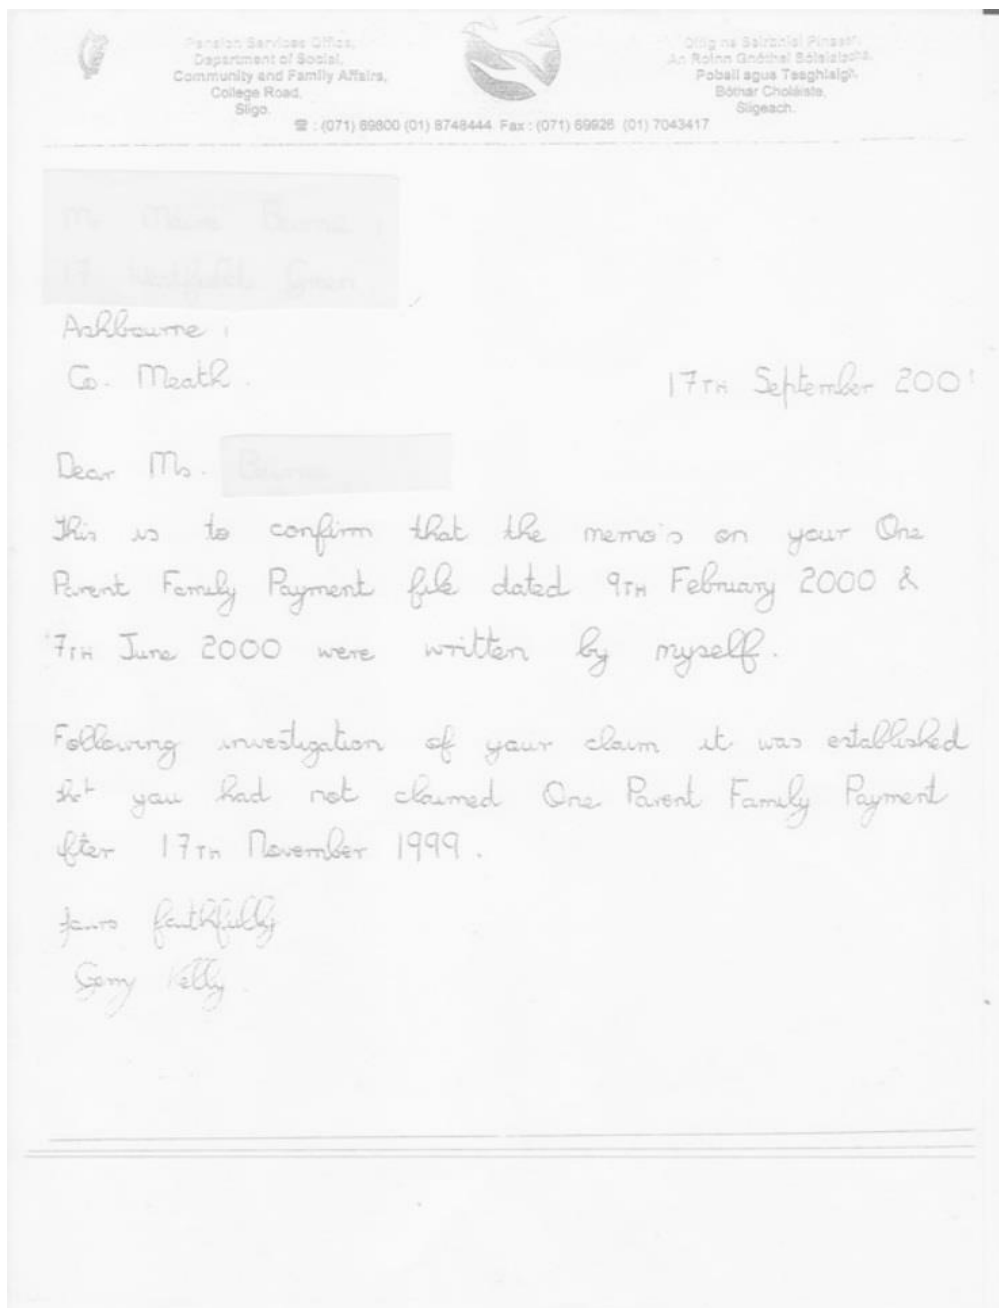 Pension Services Office,
Department of Social,
Community and Family Affairs,
College Road,
Sligo.
Oifig na Seirbhísí Pinsean,
An Roinn Gnóthaí Sóisialacha,
Pobail agus Teaghlaigh,
Bóthar Choláiste,
Sligeach.
☎ : (071) 69800 (01) 8748444 Fax : (071) 69926 (01) 7043417
Ashbourne,
Co. Meath.
17TH September 2001
Dear Ms.
This is to confirm that the memo's on your One
Parent Family Payment file dated 9TH February 2000 &
7TH June 2000 were written by myself.
Following investigation of your claim it was established
tht you had not claimed One Parent Family Payment
fter 17TH November 1999.
yours faithfully
Gerry Kelly.